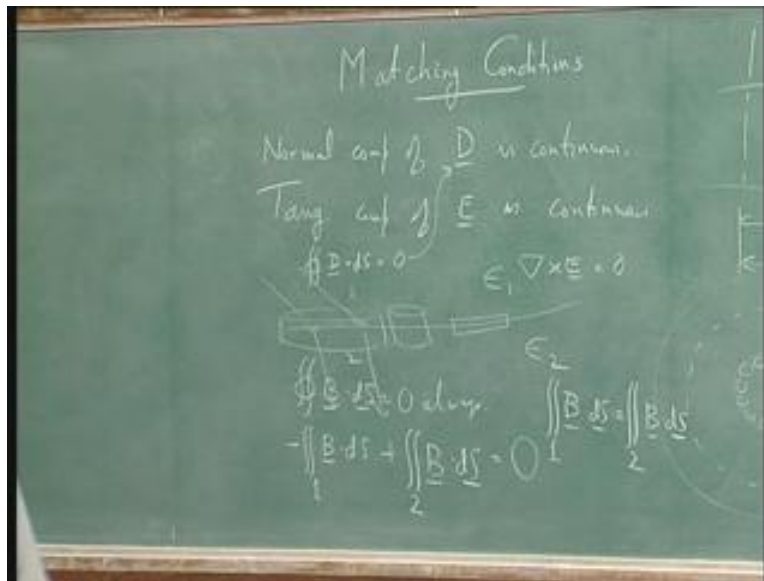 Matching Conditions
Normal comp of D is continuous.
Tang comp of E is continuous
∯ D·dS = 0
ϵ₁ ∇ × E = 0
1
2
ϵ₂
∯ B·dS = 0 always
∬₁ B·dS = ∬₂ B·dS
-∬₁ B·dS + ∬₂ B·dS = 0